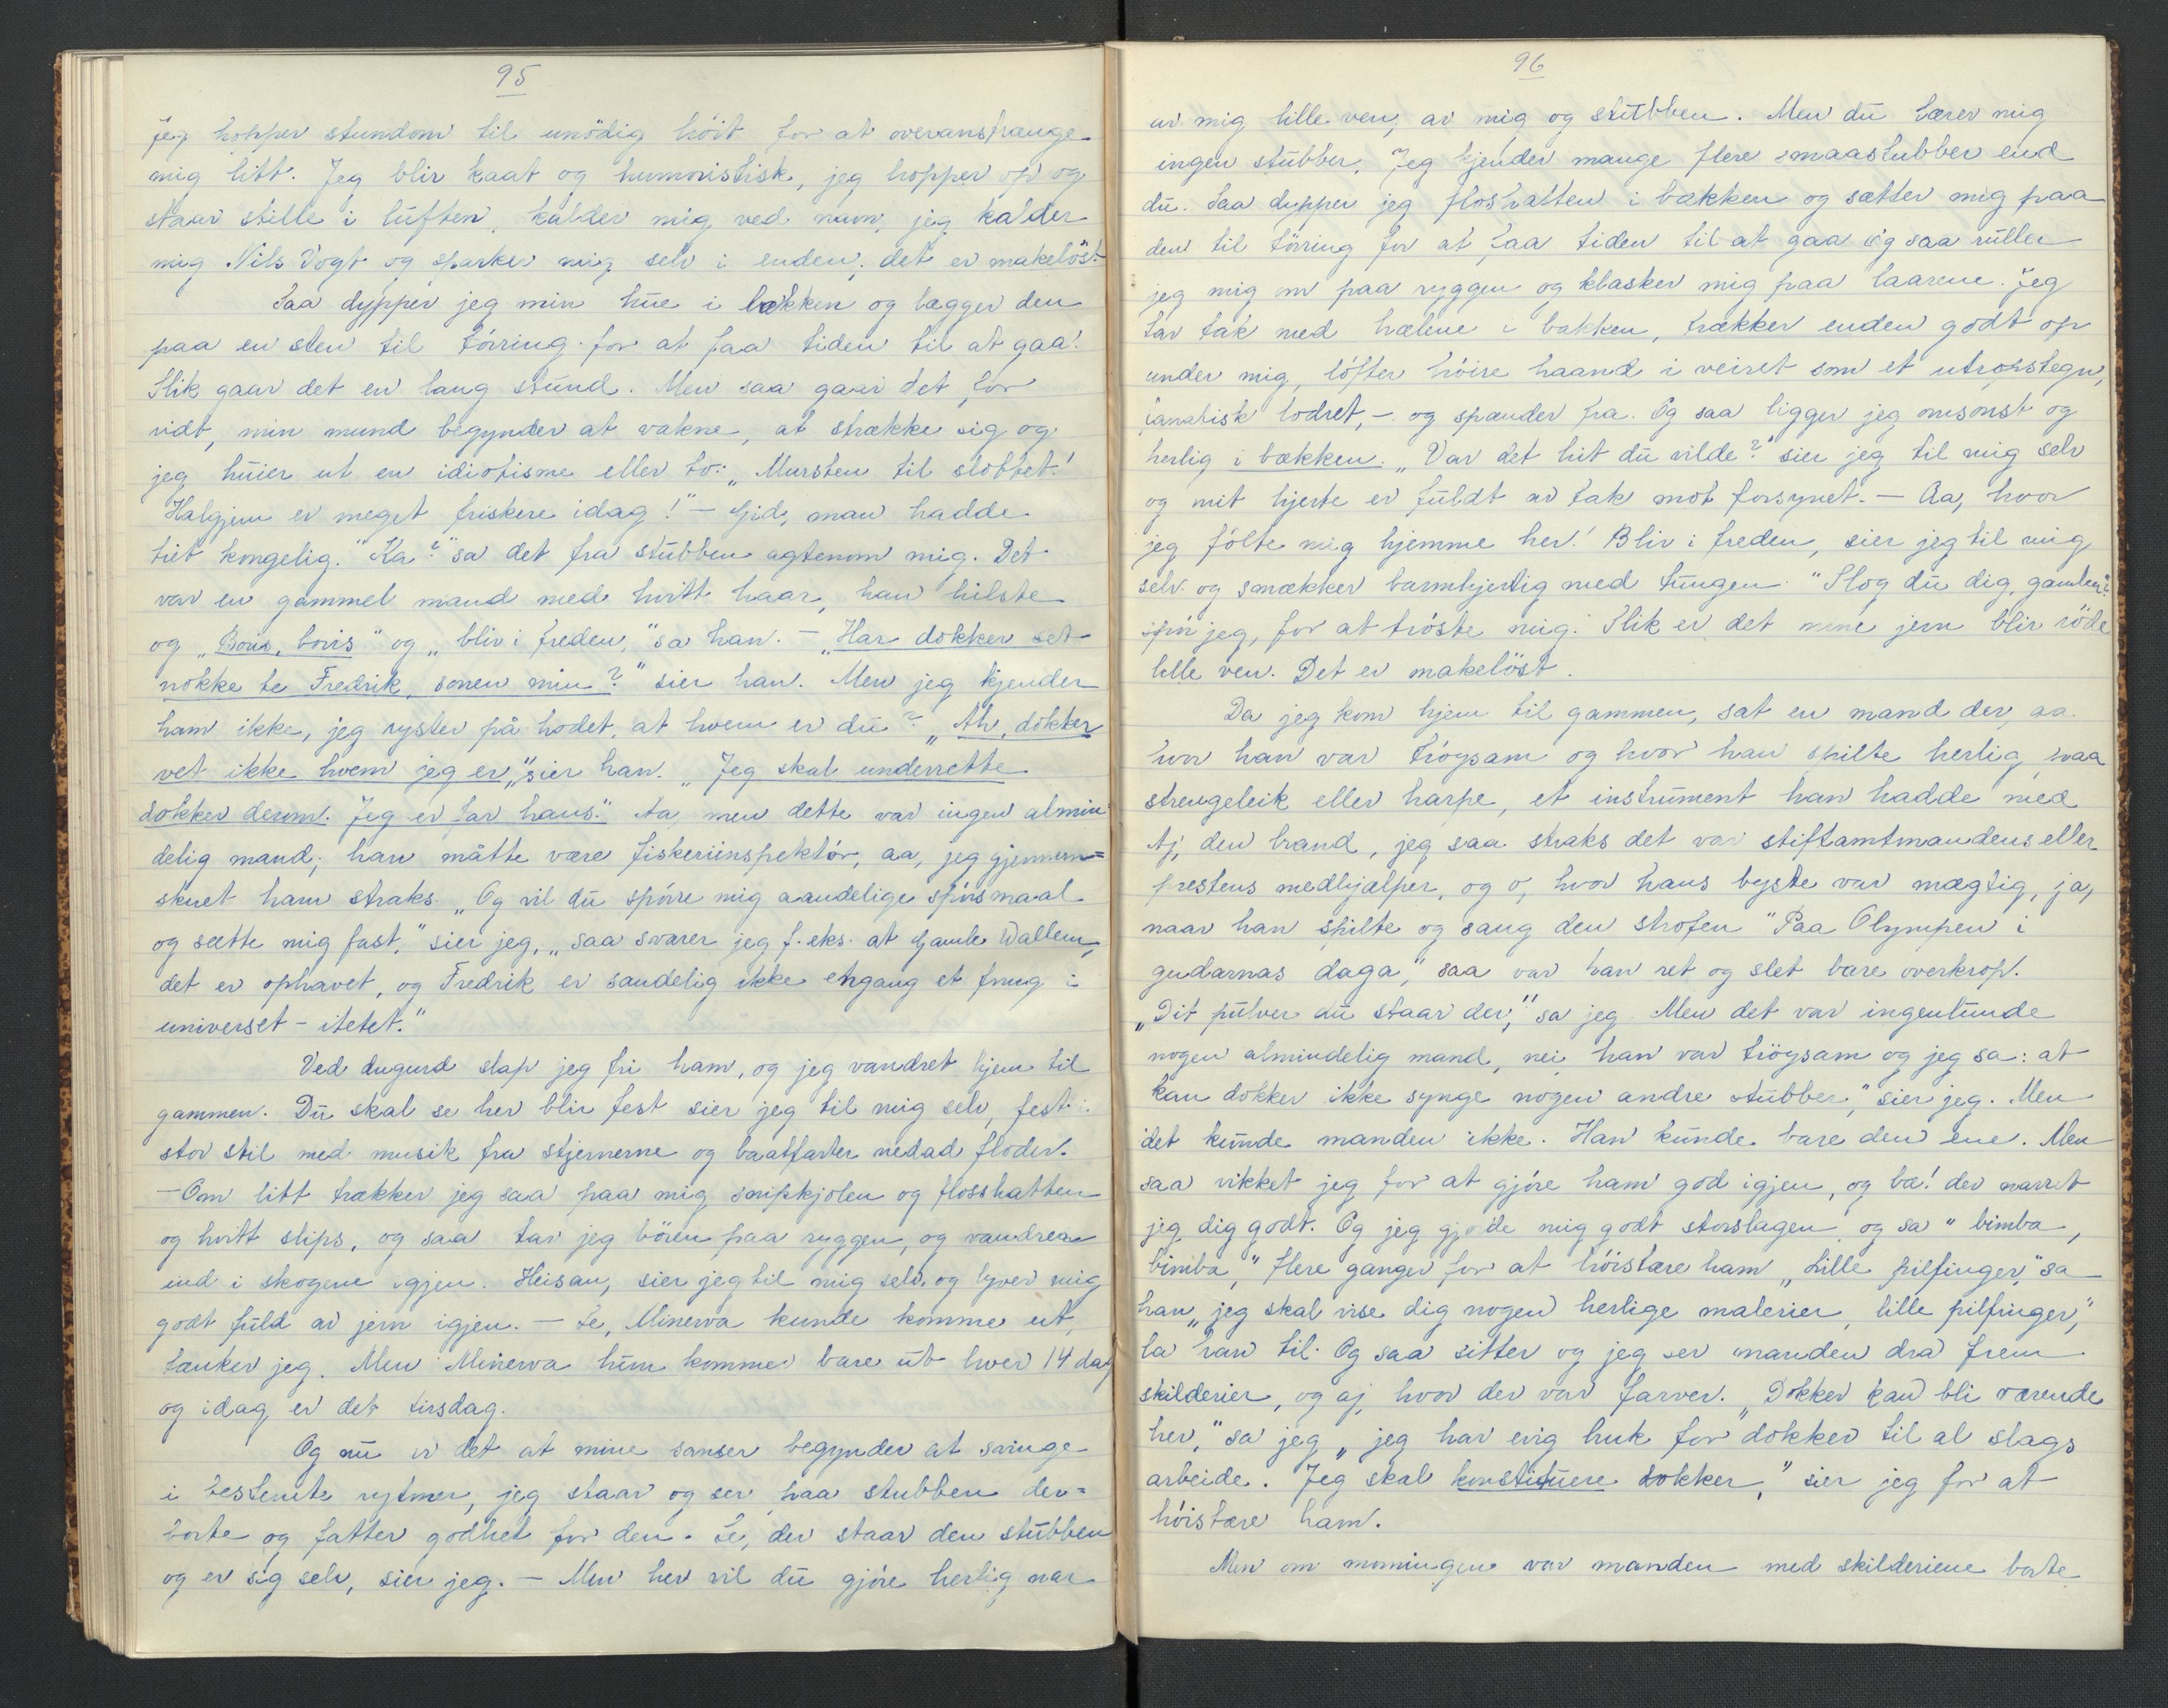 95
Jeg hopper stundom til unödig höit for at overanstrænge
mig litt. Jeg blir kaat og humoristisk, jeg hopper op og
staar stille i luften, kalder mig ved navn, jeg kalder
mig Nils Vogt og sparker mig selv i enden, det er makelöst.
Saa dypper jeg min hue i bækken og lægger den
paa en sten til törring for at faa tiden til at gaa.
Slik gaar det en lang stund. Men saa gaar det for
vidt, min mund begynder at vakne, at strække sig og
jeg huier ut en idiotisme eller to: „Mursten til slottet!
Halgjem er meget friskere idag!" – Gid, man hadde
tiet kongelig. "Ka?" sa det fra stubben agtenom mig. Det
var en gammel mand med hvitt haar, han hilste
og „Boris, boris" og „bliv i freden," sa han. – „Har dokker set
nokke te Fredrik, sonen min?" sier han. Men jeg kjender
ham ikke, jeg ryster på hodet, at hvem er du? „Ah, dokker
vet ikke hvem jeg er," sier han. „Jeg skal underrette
dokker derom. Jeg er far hans." Aa, men dette var ingen almin-
delig mand, han måtte være fiskeriinspektör, aa, jeg gjennem=
skuet ham straks. „Og vil du spörre mig aandelige spörsmaal
og sætte mig fast," sier jeg, „saa svarer jeg f. eks. at Gamle Wallem,
det er ophavet, og Fredrik er sandelig ikke engang et fnug i
universet – itetet."
Ved dugurd slap jeg fri ham, og jeg vandret hjem til
gammen. Du skal se her blir fest sier jeg til mig selv, fest i
stor stil med musik fra stjernerne og baatfarter nedad floden.
– Om litt trækker jeg saa paa mig snipkjolen og flosshatten
og hvitt slips, og saa tar jeg bören paa ryggen, og vandrer
ind i skogene igjen. Heisan, sier jeg til mig selv og lyver mig
godt fuld av jern igjen. – Se, Minerva kunde komme ut,
tænker jeg. Men Minerva hun kommer bare ut hver 14 dag
og idag er det tirsdag.
Og nu er det at mine sanser begynder at svinge
i bestemte rytmer, jeg staar og ser paa stubben der=
borte og fatter godhet for den. Se, der staar den stubben
og er sig selv, sier jeg. – Men her vil du gjöre herlig nar
96
av mig lille ven, av mig og stubben. Men du lærer mig
ingen stubber. Jeg kjender mange flere smaastubber end
du. Saa dypper jeg floshatten i bækken og sætter mig paa
den til törring for at faa tiden til at gaa og saa ruller
jeg mig om paa ryggen og klasker mig paa laarene. Jeg
tar tak med hælene i bakken, trækker enden godt op
under mig, löfter höire haand i veiret som et utropstegn,
fanatisk lodret, – og spænder fra. Og saa ligger jeg omsonst og
herlig i bækken. „Var det hit du vilde?" sier jeg til mig selv
og mit hjerte er fuldt av tak mot forsynet. – Aa, hvor
jeg fölte mig hjemme her! Bliv i freden, sier jeg til mig
selv og smækker barmhjertig med tungen. "Slog du dig, gamlen?"
spör jeg, for at tröste mig. Slik er det mine jern blir röde
lille ven. Det er makelöst.
Da jeg kom hjem til gammen, sat en mand der, aa
hvor han var tröysam og hvor han spilte herlig paa
strengeleik eller harpe, et instrument han hadde med
Aj, den brand, jeg saa straks det var stiftamtmandens eller
prestens medhjælper, og o, hvor hans byste var mægtig, ja,
naar han spilte og sang den strofen "Paa Olympen i
gudarnas daga," saa var han ret og slet bare overkrop.
„Dit pulver du staar der," sa jeg. Men det var ingenlunde
nogen almindelig mand, nei, han var tröysam og jeg sa: at
kan dokker ikke synge nogen andre stubber," sier jeg. Men
det kunde manden ikke. Han kunde bare den ene. Men
saa vikket jeg for at gjöre ham god igjen, og ba! der narret
jeg dig godt. Og jeg gjorde mig godt storslagen og sa "bimba,
bimba," flere ganger for at höistære ham „Lille pilfinger," sa
han „jeg skal vise dig nogen herlige malerier, lille pilfinger,"
la han til. Og saa sitter og jeg ser manden dra frem
skilderier, og aj, hvor der var farver. „Dokker kan bli værende
her," sa jeg, „jeg har evig huk for dokker til al slags
arbeide. Jeg skal konstituere dokker," sier jeg for at
höistære ham.
Men om morningen var manden med skilderiene borte